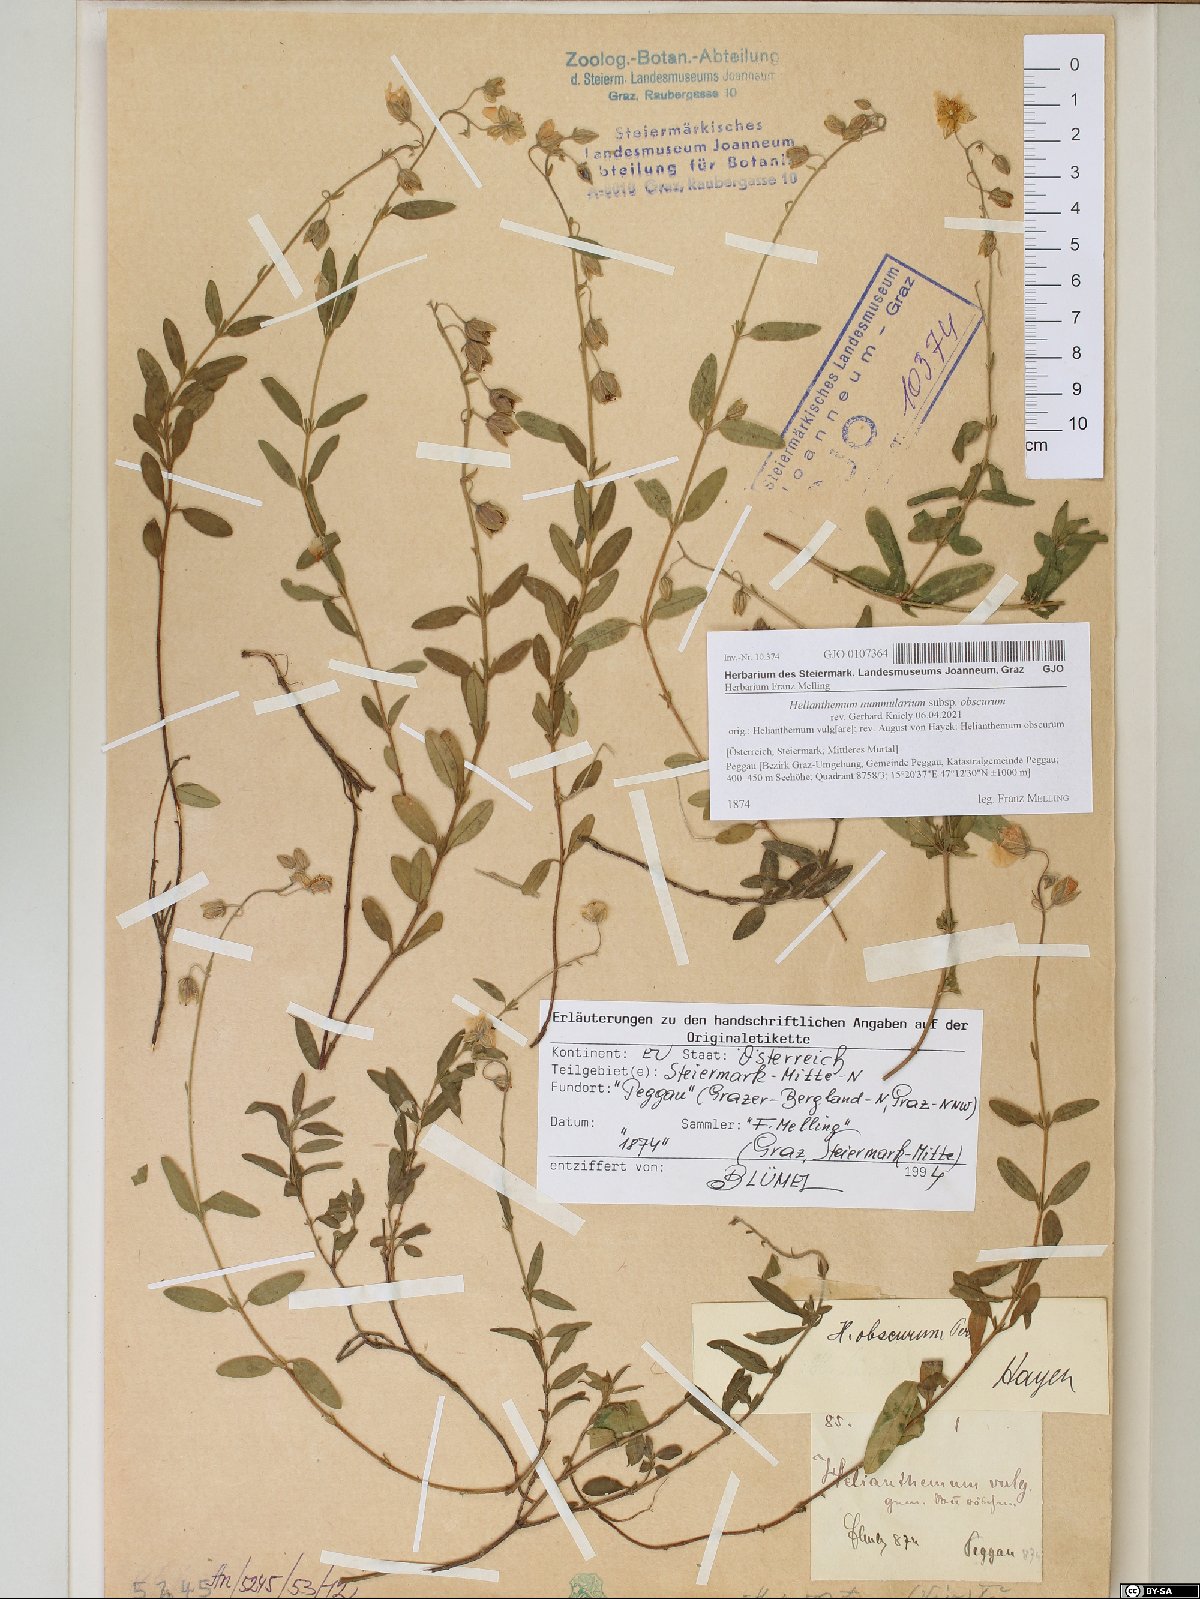 Zoolog.-Botan.-Abteilung
d. Steierm. Landesmuseums Joanneum
Graz, Raubergasse 10
Steiermärkisches
Landesmuseum Joanneum
Abteilung für Botanik
A-8010 Graz, Raubergasse 10
0
1
2
3
4
5
6
7
8
9
10
cm
Steiermärkisches Landesmuseum
Joanneum - Graz
GJO 10374
Inv.-Nr. 10.374 GJO 0107364
Herbarium des Steiermärk. Landesmuseums Joanneum, Graz GJO
Herbarium Franz Melling
Helianthemum nummularium subsp. obscurum
rev. Gerhard Kniely 06.04.2021
orig.: Helianthemum vulg[are]; rev. August von Hayek: Helianthemum obscurum
[Österreich, Steiermark; Mittleres Murtal]
Peggau [Bezirk Graz-Umgebung, Gemeinde Peggau, Katastralgemeinde Peggau;
400–450 m Seehöhe; Quadrant 8758/3; 15°20'37"E 47°12'30"N ±1000 m]
1874 leg. Franz MELLING
Erläuterungen zu den handschriftlichen Angaben auf der
Originaletikette
Kontinent: EU Staat: Österreich
Teilgebiet(e): Steiermark-Mitte-N
Fundort: "Peggau" (Grazer-Bergland-N, Graz-NNW)
Datum: "1874" Sammler: "F. Melling"
(Graz, Steiermark-Mitte)
entziffert von: BLÜMEL 1994
H. obscurum Per
Hayek
85. 1
Helianthemum vulg.
874 Peggau 874
5245 /5245/53/12/
CC BY-SA